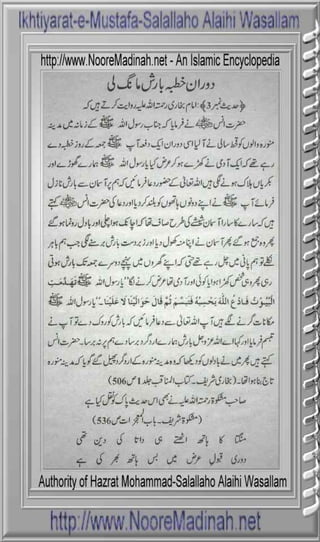 Ikhtiyarat-e-Mustafa-Salallaho Alaihi Wasallam
http://www.NooreMadinah.net - An Islamic Encyclopedia
دوران خطبہ بارش مانگ لی
﴿حدیث نمبر 3﴾: امام بخاری رحمۃ اللہ علیہ روایت کرتے ہیں کہ
حضرت انس ﷺ نے فرمایا کہ جناب رسول اللہ ﷺ کے زمانہ میں مدینہ
منورہ والوں کو قحط سالی نے آ لیا اسی دوران ایک دفعہ آپ ﷺ جمعہ کے روز خطبہ دے
رہے تھے کہ ایک آدمی نے کھڑے ہو کر عرض کیا یا رسول اللہ ﷺ ہمارے گھوڑے اور
بکریاں ہلاک ہونے لگی ہیں اللہ تعالیٰ کے حضور دعا فرمائیں کہ ہم پر آسمان سے بارش نازل
فرمائے آپ ﷺ نے اپنے دونوں ہاتھوں کو بلند کر دیا اور دعا کی حضرت انس کہتے
ہیں کہ سارے کا سارا آسمان شیشے کی طرح صاف تھا کہ اچانک ہوا چلی اور بادل رونما ہو گئے
پھر وہ جمع ہو گئے پھر آسمان نے اپنا منہ کھول دیا اور زبردست بارش برسنے لگی جب ہم باہر
نکلے تو ہم پانی میں چل رہے تھے حتی کہ اپنے گھروں میں پہنچے دوسرے جمعہ تک بارش ہوتی
رہی پھر وہی شخص کھڑا ہوا یا کوئی اور آدمی تھا عرض کرنے لگا "یا رسول اللہ ﷺ تَهَدَّمَتِ
الْبُيُوتُ فَادْعُ اللَّهَ يَحْبِسْهُ فَتَبَسَّمَ ثُمَّ قَالَ حَوَالَيْنَا وَلَا عَلَيْنَا۔ "یا رسول اللہ ﷺ
مکانات گرنے لگے ہیں آپ اللہ تعالیٰ سے دعا فرمائیں کہ بارش کو روک دے تو آپ نے
تبسم فرمایا اور کہا اے اللہ عزوجل بارش ہمارے اردگرد برسا دے ہم پر نہ برسا۔ حضرت انس
کہتے ہیں پھر میں نے بادلوں کو دیکھا کہ وہ مدینہ منورہ کے اردگرد پھیل گئے گویا کہ مدینہ منورہ
تاج بنا ہوا تھا۔ (بخاری شریف۔ کتاب المناقب جلد 1 ص 506)
صاحب مشکوۃ رحمۃ اللہ علیہ نے بھی اس حدیث پاک کو نقل کیا ہے
(مشکوۃ شریف۔ باب المعجزات ص 536)
منگتا کا ہاتھ اٹھتے ہی داتا کی دین تھی
دوری قبول و عرض میں بس ہاتھ بھر کی ہے
Authority of Hazrat Mohammad-Salallaho Alaihi Wasallam
http://www.NooreMadinah.net